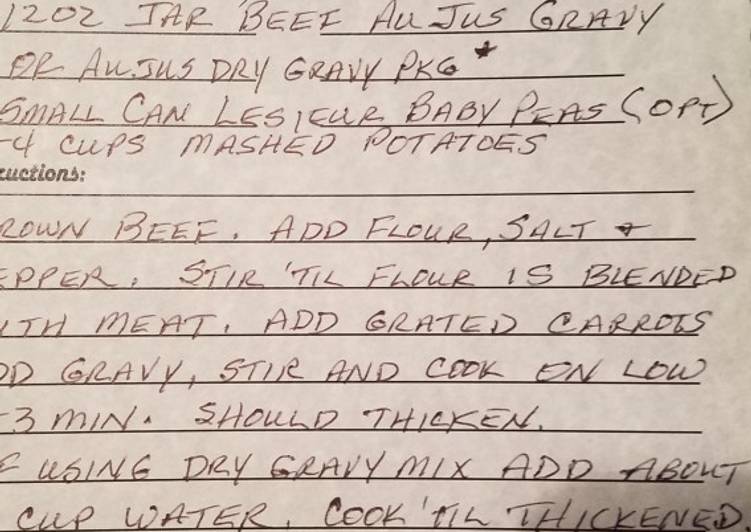 12OZ JAR BEEF AU JUS GRAVY
OR AU JUS DRY GRAVY PKG *
SMALL CAN LESIEUR BABY PEAS (OPT)
-4 CUPS MASHED POTATOES
ructions:
ROWN BEEF. ADD FLOUR, SALT +
EPPER. STIR 'TIL FLOUR IS BLENDED
ITH MEAT. ADD GRATED CARROTS
DD GRAVY, STIR AND COOK ON LOW
-3 MIN. SHOULD THICKEN.
F USING DRY GRAVY MIX ADD ABOUT
CUP WATER, COOK 'TIL THICKENED.